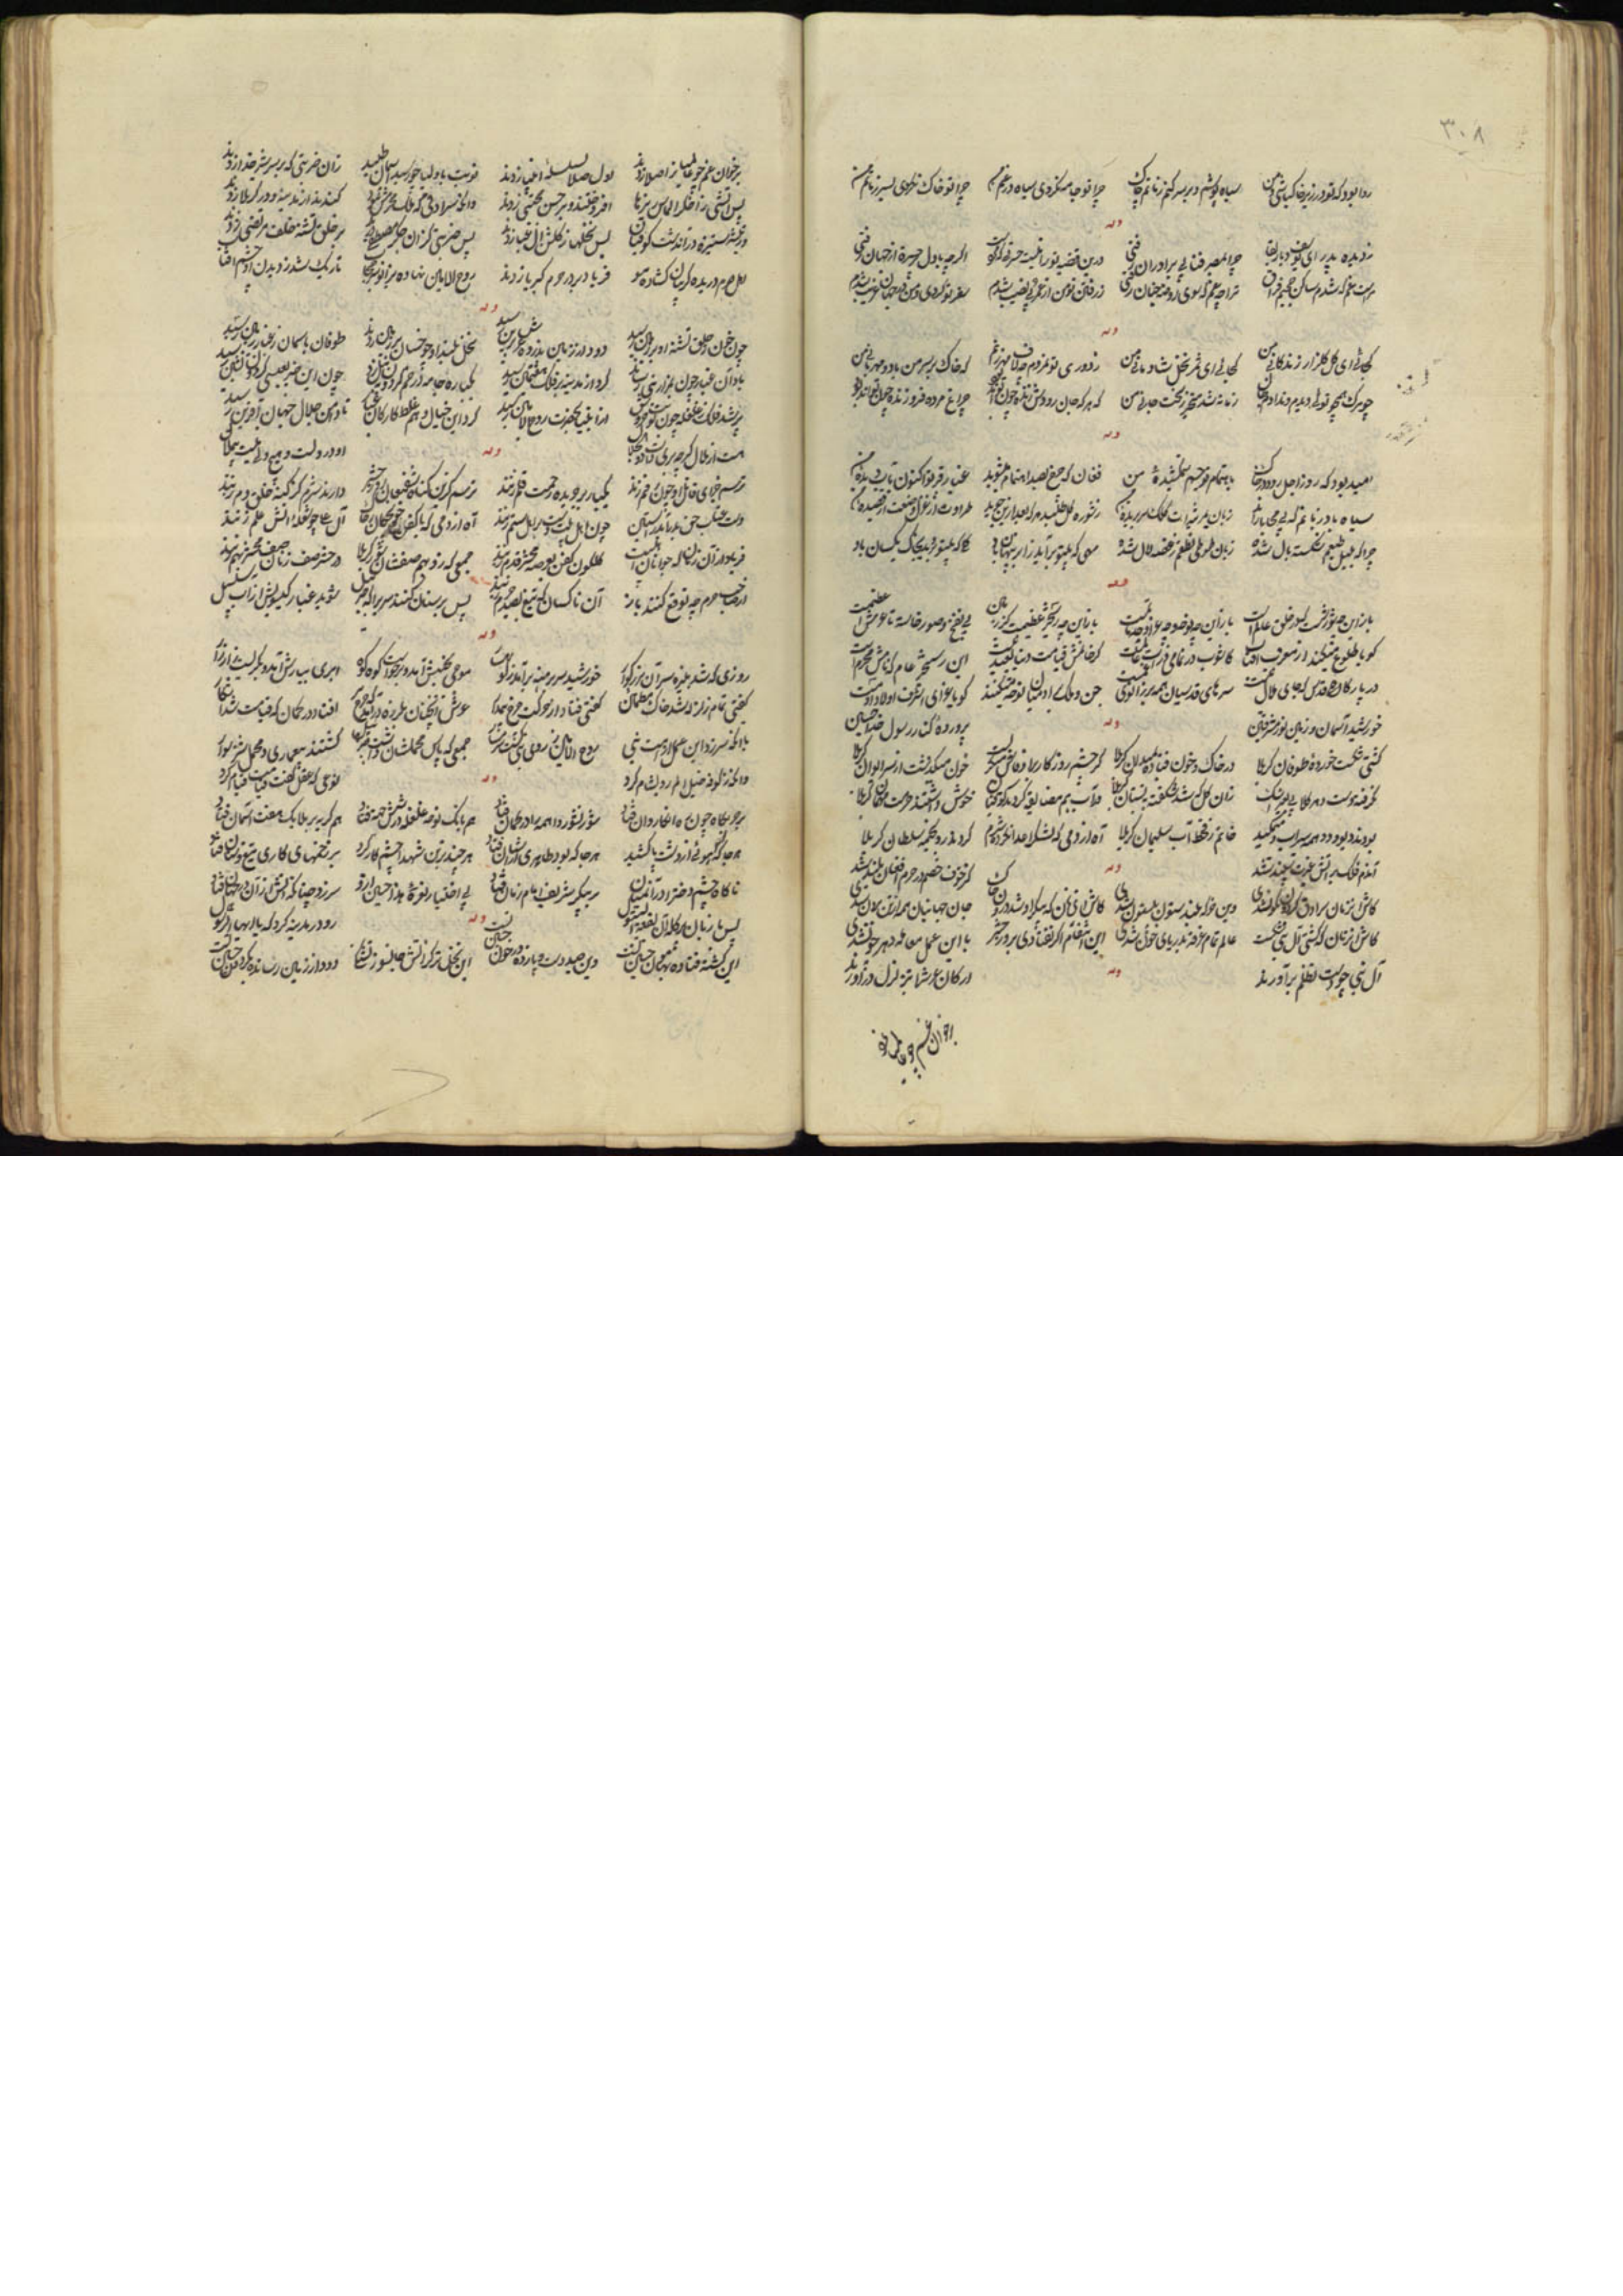 ۳۰۸
روا بود که تو در زیر خاک باشی و من سیاه پوشم و بر سر کنم ز ماتم خاک چرا تو جامه نکردی سیاه در غم من چرا تو خاک نکردی بسر ز ماتم من
وله
ز دیده پدر ای یوسف دیار بقا چرا بمصر فنا بی برادران رفتی درین قضیه تو را نیست حسرتی که مراست اگرچه با دل پر حسرت از جهان رفتی
مراست غم که شدم ساکن جحیم فراق ترا چه غم که سوی روضه جنان رفتی ز رفتن تو من از عمر بی نصیب شدم سفر تو کردی و من در جهان غریب شدم
وله
کجائی ای گل گلزار زندگانی من کجائی ای ثمر نخل شادمانی من ز دوری تو بمردم چه لاف مهر زنم که خاک بر سر من باد و مهربانی من
چو مرگ همچو توئی دیدم و ندادم جان زمانه شد متحیر ز سخت جانی من که هر که جان رودش زنده چون تواند بود چراغ مرده فروزنده چون تواند بود
وله
امید بود که روز اجل رود در خاک باهتمام تو جسم ستم کشیده من فغان که چرخ بصد اهتمام میشوید غبار مرقدت اکنون بآب دیده من
سیاه باد زبانم که بی محابا شد زبان مرثیه‌ات کلک سر بریده من ز شوره گل طلبد هر که بعد ازین جوید طراوت از غزل و صنعت از قصیده من
چرا که بلبل طبعم شکسته بال شده زبان طوطی نطقم ز غصه لال شده مهی که بیتو برآید ز ابر پنهان باد گلی که بیتو بروید بخاک یکسان باد
وله
باز این چه شورش است که در خلق عالم است باز این چه نوحه و چه عزا و چه ماتم است باز این چه رستخیز عظیم است کز زمین بی نفخ صور خاسته تا عرش اعظم است
گویا طلوع میکند از مغرب آفتاب کاشوب در تمامی ذرات عالم است گر خوانمش قیامت دنیا بعید نیست این رستخیز عام که نامش محرم است
در بارگاه قدس که جای ملال نیست سرهای قدسیان همه بر زانوی غم است جن و ملک بر آدمیان نوحه میکنند گویا عزای اشرف اولاد آدم است
خورشید آسمان و زمین نور مشرقین وله پرورده کنار رسول خدا حسین
کشتی شکست خورده طوفان کربلا در خاک و خون فتاده میدان کربلا گر چشم روزگار برو فاش میگریست خون میگذشت از سر ایوان کربلا
نگرفت دست دهر گلابی بغیر اشک زان گل که شد شکفته ببستان کربلا از آب هم مضایقه کردند کوفیان خوش داشتند حرمت مهمان کربلا
بودند دیو و دد همه سیراب و میمکید خاتم ز قحط آب سلیمان کربلا آه از دمی که لشکر اعدا نکرده شرم کردند رو بخیمه سلطان کربلا
آندم فلک بر آتش غیرت سپند شد وله کز خوف خصم در حرم افغان بلند شد
کاش آنزمان سرادق گردون نگون شدی وین خرگه بلند ستون بیستون شدی کاش آنزمان که پیکر او شد درون خاک جان جهانیان همه از تن برون شدی
کاش آنزمان که کشتی آل نبی شکست عالم تمام غرقه دریای خون شدی این انتقام گر نفتادی بروز حشر با این عمل معامله دهر چون شدی
آل نبی چو دست تظلم برآورند وله ارکان عرش را بتزلزل درآورند
بر خوان غم چو عالمیان
بر خوان غم چو عالمیان را صلا زدند اول صلا بسلسله انبیا زدند نوبت باولیا چو رسید آسمان طپید زان ضربتی که بر سر شیر خدا زدند
پس آتشی ز اخگر الماس ریزها افروختند و بر حسن مجتبی زدند وانگه سرادقی که فلک محرمش نبود کندند از مدینه و در کربلا زدند
وز تیشه ستیزه در آن دشت کوفیان بس نخلها ز گلشن آل عبا زدند پس ضربتی کزان جگر مصطفی درید بر حلق تشنه خلف مرتضی زدند
اهل حرم دریده گریبان گشاده مو فریاد بر در حرم کبریا زدند روح الامین نهاده بزانو سر حجاب تاریک شد ز دیدن او چشم آفتاب
وله
چون خون ز حلق تشنه او بر زمین رسید جوش از زمین بذروه عرش برین رسید نخل بلند او چو خسان بر زمین زدند طوفان بآسمان ز غبار زمین رسید
باد آن غبار چون بمزار نبی رساند گرد از مدینه بر فلک هفتمین رسید یکباره جامه در خم گردون بنیل زد چون این خبر بعیسی گردون نشین رسید
پر شد فلک ز غلغله چون نوبت خروش از انبیا بحضرت روح الامین رسید کرد این خیال وهم غلط کار کان غبار تا دامن جلال جهان آفرین رسید
هست از ملال گرچه بری ذات ذوالجلال وله او در دلست و هیچ دلی نیست بی ملال
ترسم جزای قاتل او چون رقم زنند یکباره بر جریده رحمت قلم زنند ترسم کزین گناه شفیعان روز حشر دارند شرم کز گنه خلق دم زنند
دست عتاب حق بدر آید ز آستین چون اهل بیت دست بر اهل ستم زنند آه از دمی که با کفن خونچکان ز خاک آل علی چو شعله آتش علم زنند
فریاد از آن زمان که جوانان اهل بیت گلگون کفن بعرصه محشر قدم زنند جمعی که زد بهم صفشان شور کربلا در حشر صف زنان صف محشر بهم زنند
از صاحب حرم چه توقع کنند باز آن ناکسان که تیغ بصید حرم زنند پس بر سنان کنند سری را که جبرئیل شوید غبار گیسویش از آب سلسبیل
وله
روزی که شد بنیزه سر آن بزرگوار خورشید سر برهنه برآمد ز کوهسار موجی بجنبش آمد و برخاست کوه کوه ابری ببارش آمد و بگریست زار زار
گفتی تمام زلزله شد خاک مطمئن گفتی فتاد از حرکت چرخ بیقرار عرش آنچنان بلرزه درآمد که چرخ پیر افتاد در گمان که قیامت شد آشکار
با آنکه سر زد این عمل از امت نبی روح الامین ز روی نبی گشت شرمسار جمعی که پاس محملشان داشت جبرئیل گشتند بی عماری و محمل شتر سوار
وانگه ز کوفه خیل الم رو بشام کرد وله نوعی که عقل گفت قیامت قیام کرد
بر حربگاه چون ره آن کاروان فتاد شور نشور واهمه را در گمان فتاد هم بانگ نوحه غلغله در شش جهت فکند هم گریه بر ملایک هفت آسمان فتاد
هرجا که بود آهوئی از دشت پا کشید هرجا که بود طایری از آشیان فتاد هرچند بر تن شهدا چشم کار کرد بر زخمهای کاری تیغ و سنان فتاد
ناگاه چشم دختر زهرا در آن میان بر پیکر شریف امام زمان فتاد بی اختیار نعره هذا حسین ازو سر زد چنانکه آتش ازان در جهان فتاد
پس با زبان پر گله آن بضعة البتول وله رو در مدینه کرد که یا ایها الرسول
این کشته فتاده بهامون حسین تست وین صید دست و پا زده در خون حسین تست این نخل تر کز آتش جانسوز تشنگی دود از زمین رسانده بگردون حسین تست